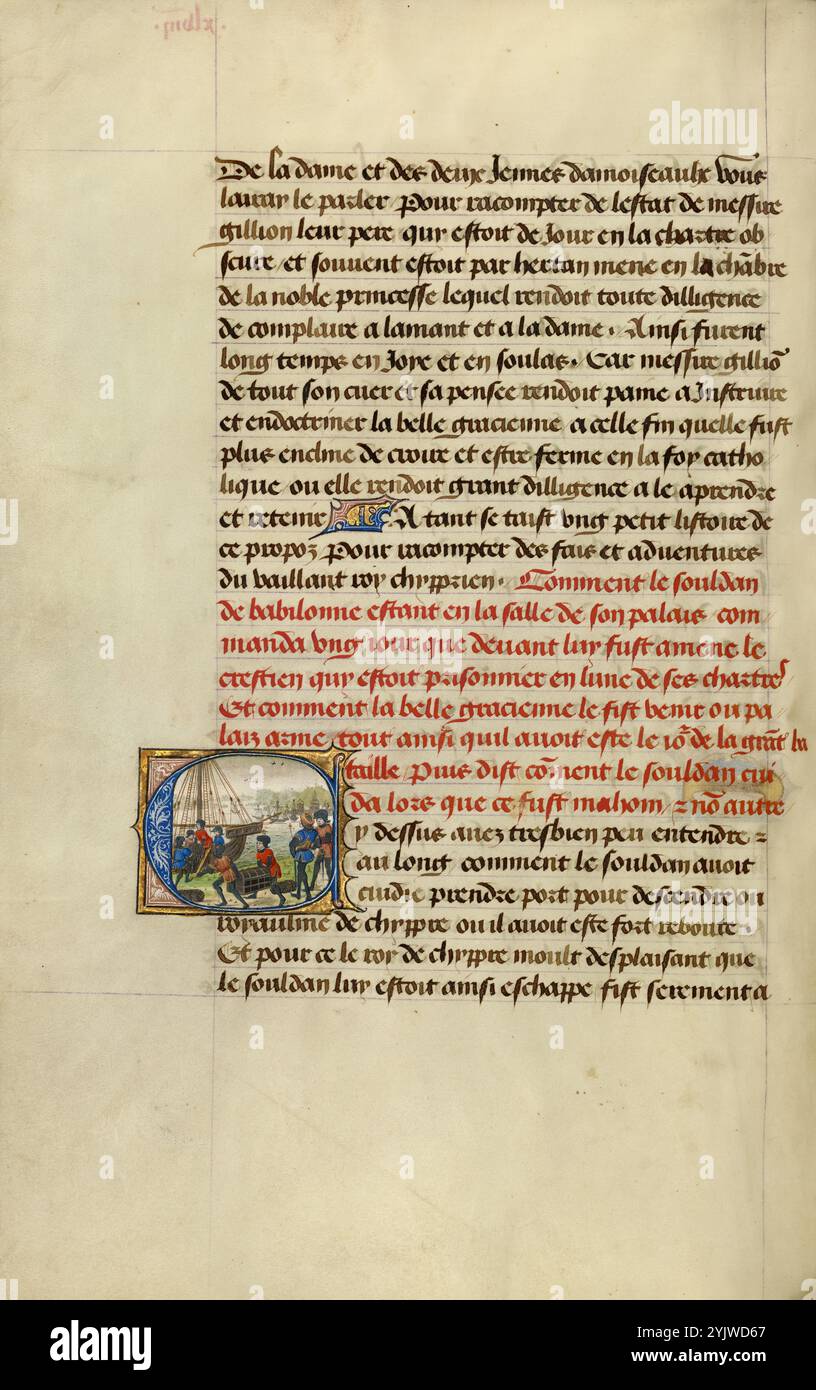 xlviij.
De la dame et des deux Jennes damoiseaulx vous
lairay le parler Pour racompter de lestat de messire
gillion leur pere quy estoit de Jour en la chartre ob
scure et souvent estoit par hertan mene en la chãbre
de la noble princesse lequel rendoit toute dilligence
de complaire a lamant et a la dame. Ainsi furent
long temps en Joye et en soulas. Car messire gilliõ
de tout son cuer et sa pensee rendoit paine a Instruire
et endoctriner la belle gracienne a celle fin quelle fust
plus encline de croire et estre ferme en la foy catho
lique ou elle rendoit grant dilligence a le aprendre
et retenir A tant se taist ung petit listoire de
ce propoz Pour racompter des fais et adventures
du vaillant roy chyprien. Comment le souldan
de babilonne estant en la salle de son palais com
manda ung jour que devant luy fust amene le
crestien quy estoit prisonnier en lune de ses chartres
Et comment la belle gracienne le fist venir ou pa
laiz arme tout ainsi quil avoit este le jõ de la grãt ba
taille Puis dist cõment le souldan cui
da lors que ce fust mahom z nõ autre
Cy dessus avez tresbien peu entendre z
au long comment le souldan avoit
cuidie prendre port pour descendre ou
royaulme de chyppre ou il avoit este fort reboute.
Et pour ce le roy de chyppre moult desplaisant que
le souldan luy estoit ainsi eschappe fist serement a
alamy
a
alamy
Image ID: 2YJWD67
www.alamy.com